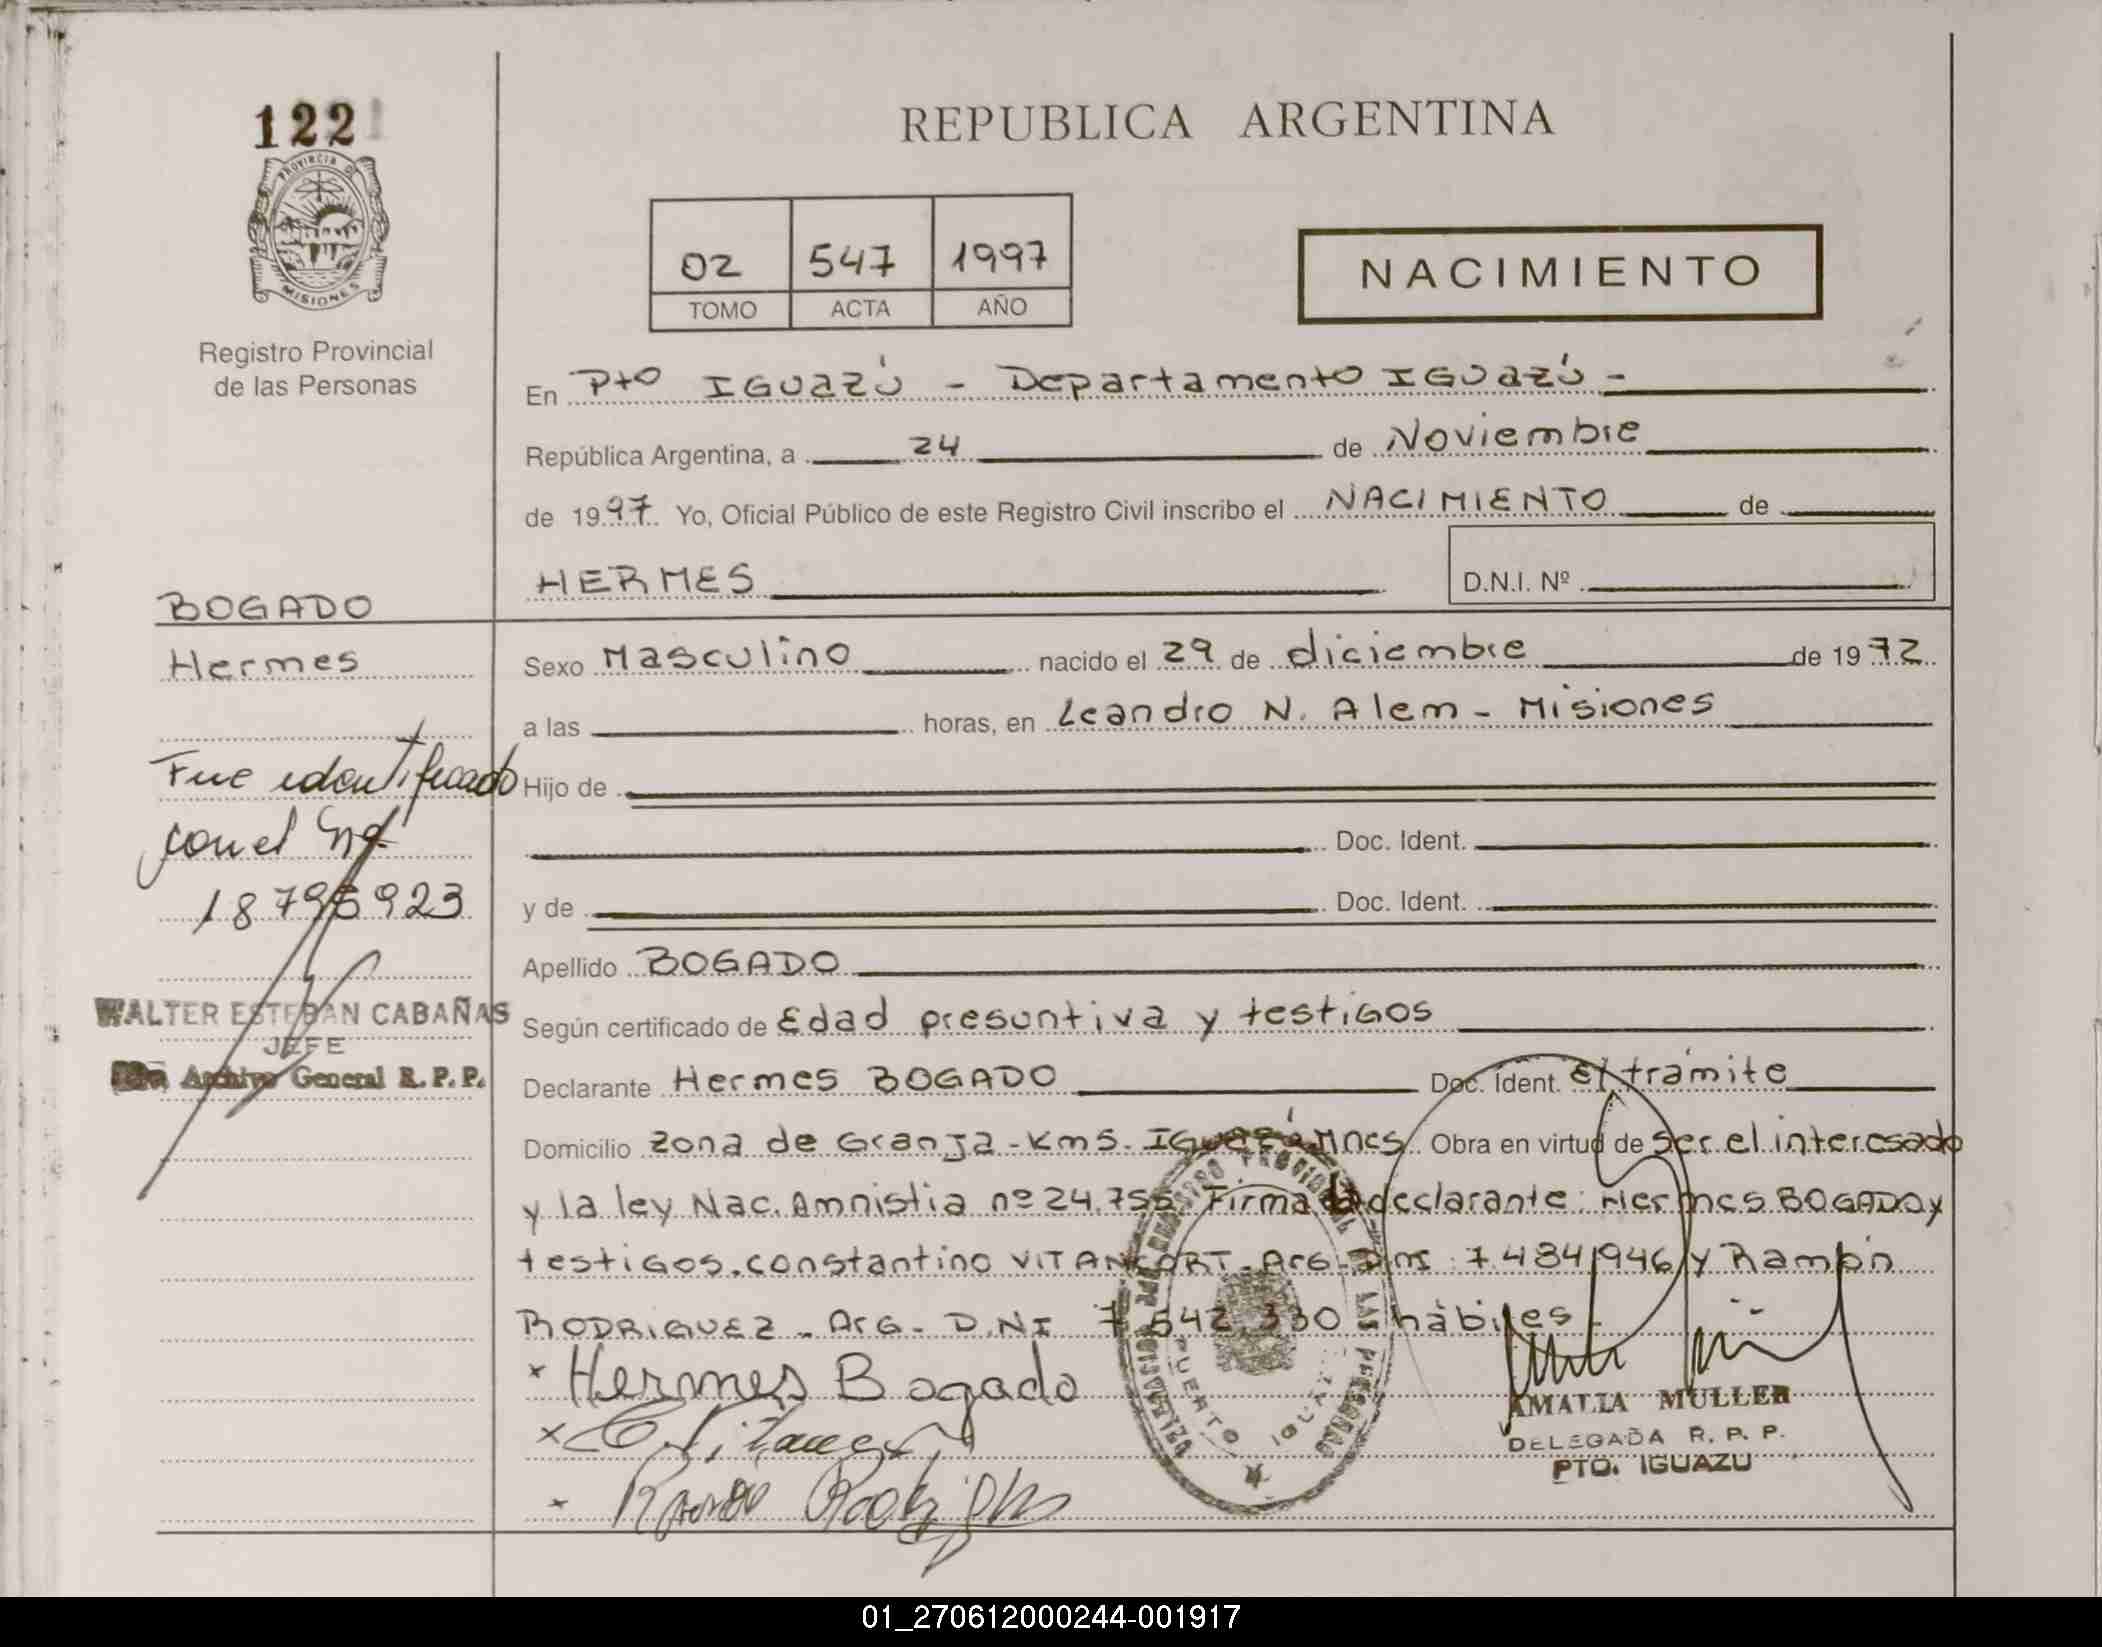 122
PROVINCIA DE
MISIONES
Registro Provincial
de las Personas
REPUBLICA ARGENTINA
02 547 1997
TOMO ACTA AÑO
NACIMIENTO
En Pto IGUAZÚ - Departamento IGUAZÚ -
República Argentina, a 24 de Noviembre
de 1997 Yo, Oficial Público de este Registro Civil inscribo el NACIMIENTO de
HERMES D.N.I. Nº
BOGADO
Hermes
Fue identificado
con el
18796923
WALTER ESTEBAN CABAÑAS
JEFE
Archivo General R. P. P.
Sexo Masculino nacido el 29 de diciembre de 1972
a las horas, en Leandro N. Alem - Misiones
Hijo de
Doc. Ident.
y de Doc. Ident.
Apellido BOGADO
Según certificado de Edad presuntiva y testigos
Declarante Hermes BOGADO Doc. Ident. E/trámite
Domicilio Zona de Granja - Km 5 - IGUAZÚ Mnes Obra en virtud de ser el interesado
y la ley Nac. Amnistia nº 24.755 Firma declarante: Hermes BOGADO y
testigos. Constantino VITANCORT - Arg - Dni 7.484.946 y Ramón
RODRIGUEZ - Arg - D.NI 7.542.330 - hábiles -
x Hermes Bogado
x
x
REGISTRO PROVINCIAL DE LAS PERSONAS
DELEGACION
PUERTO IGUAZU
AMALIA MULLER
DELEGADA R. P. P.
PTO. IGUAZU
01_270612000244-001917